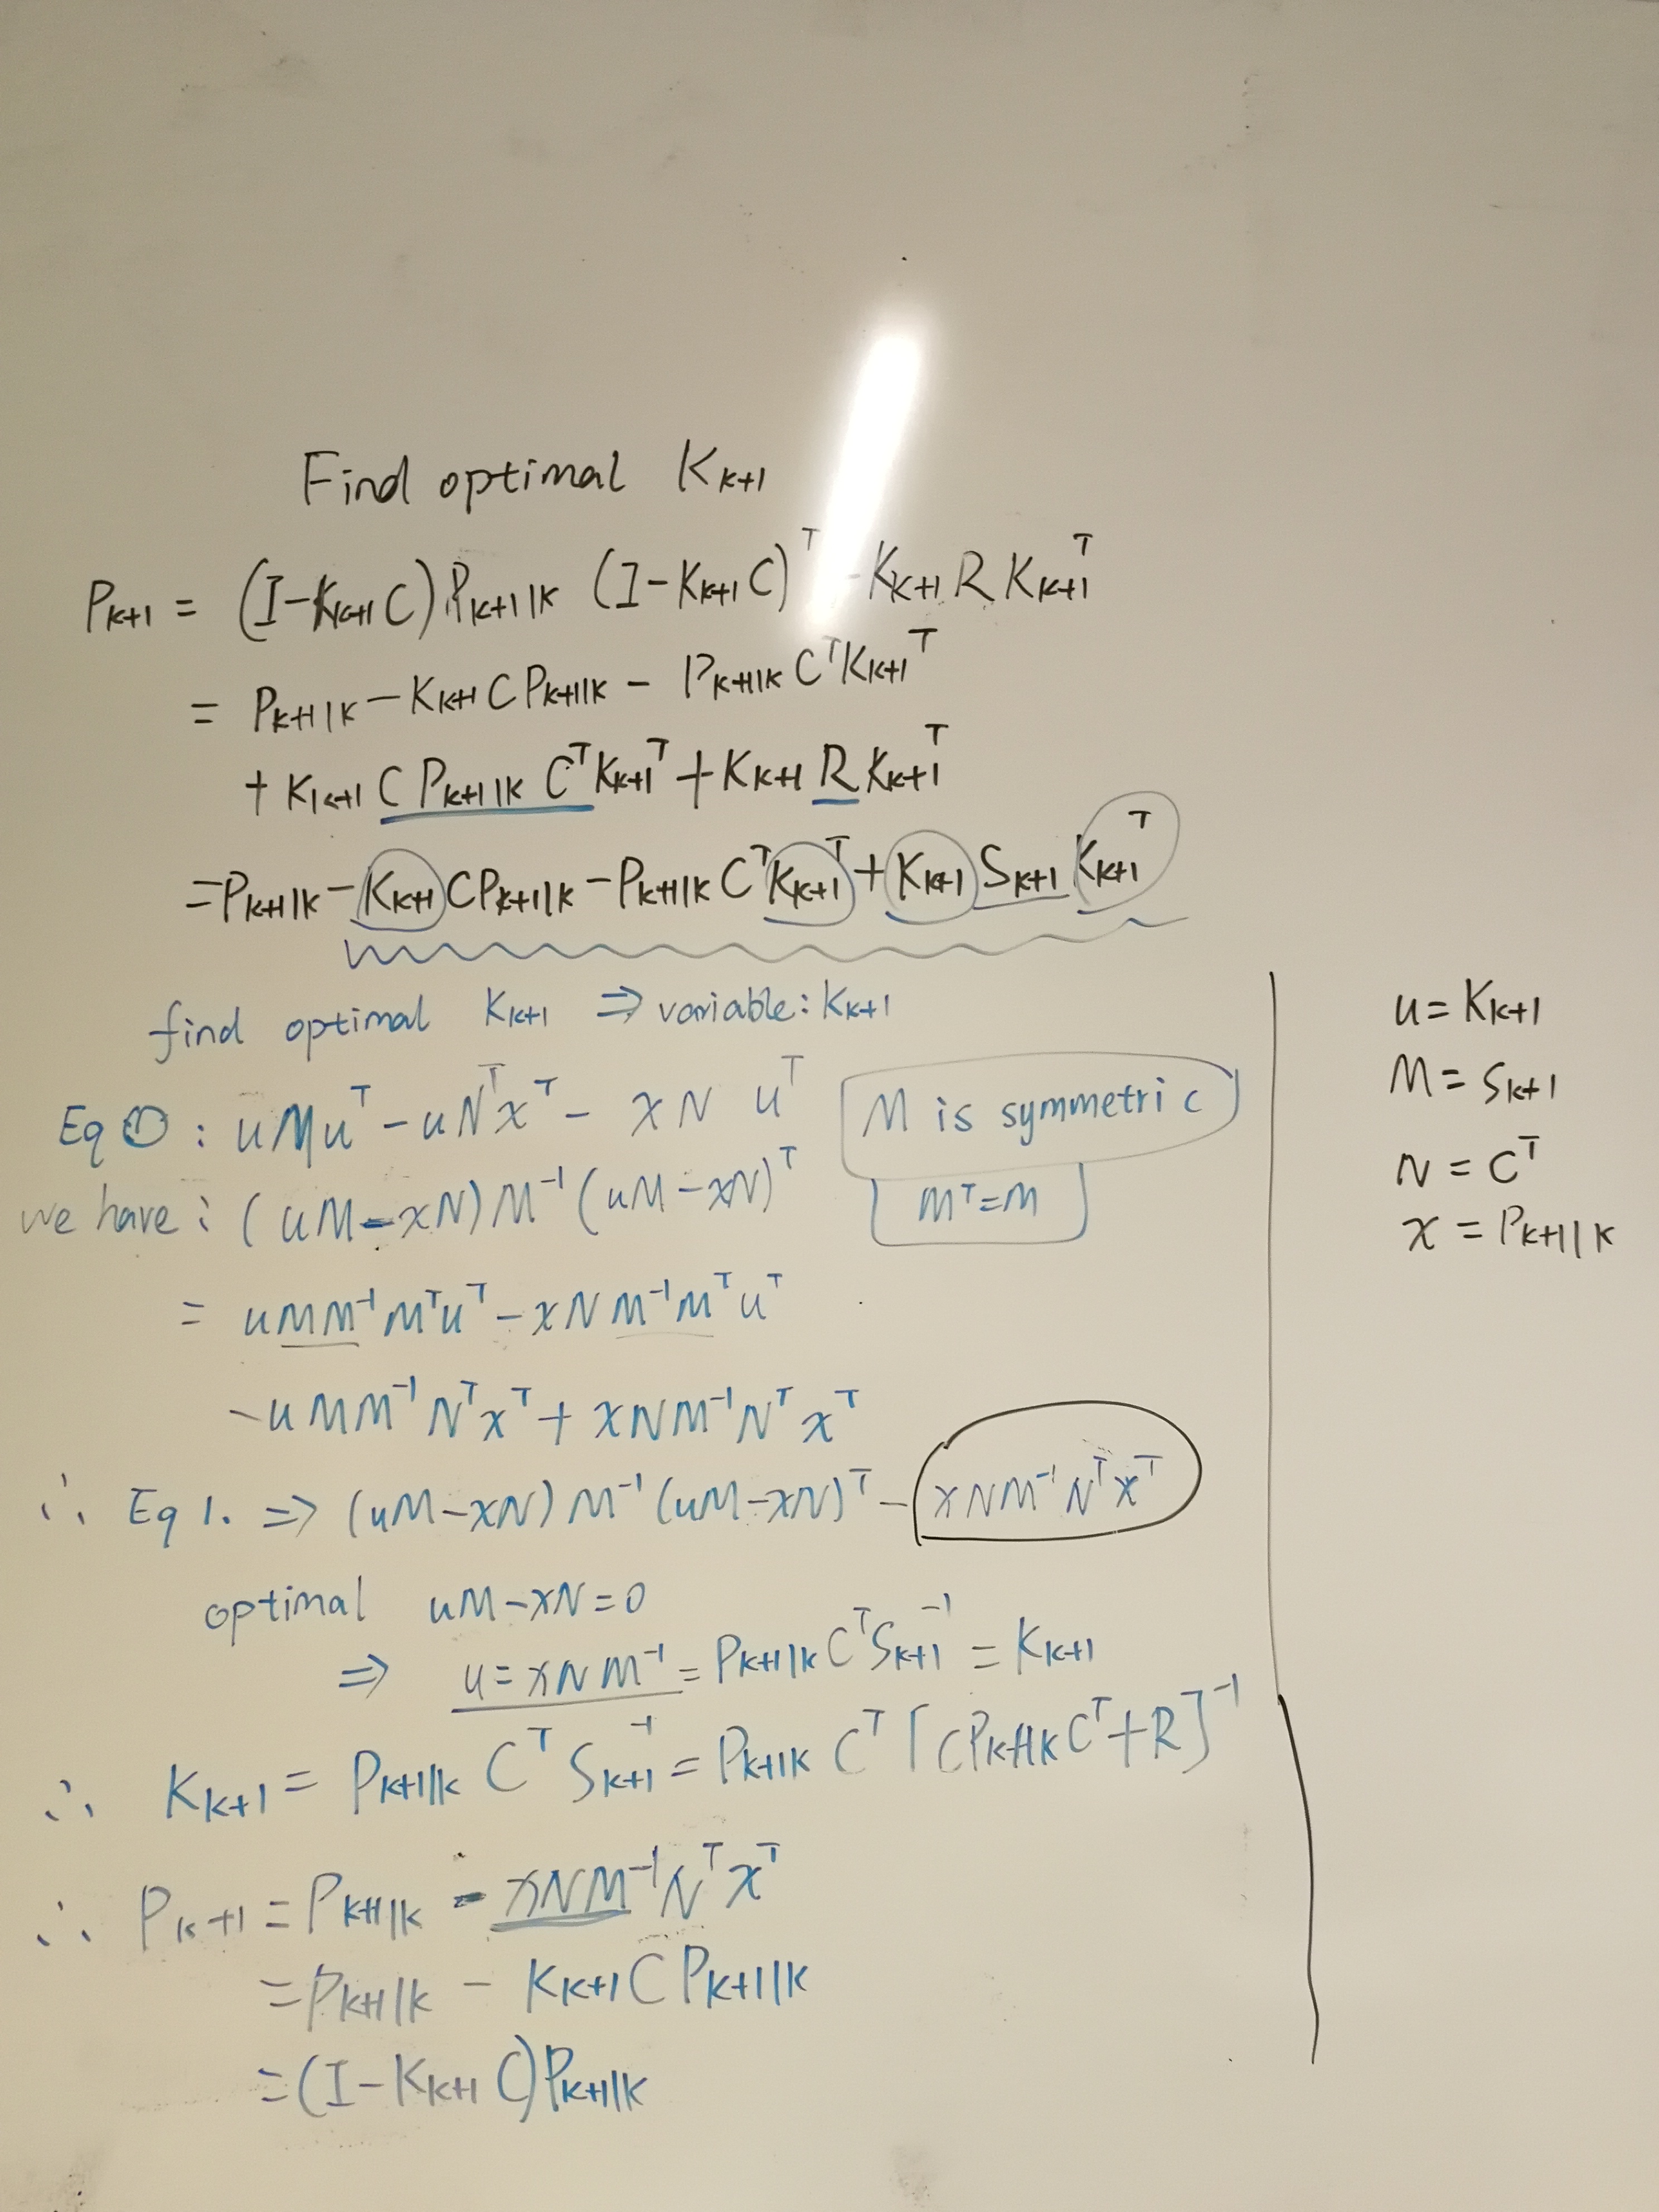 Find optimal K_{k+1}
P_{k+1} = (I-K_{k+1}C)P_{k+1|k} (I-K_{k+1}C)^T - K_{k+1} R K_{k+1}^T
= P_{k+1|k} - K_{k+1} C P_{k+1|k} - P_{k+1|k} C^T K_{k+1}^T
+ K_{k+1} C P_{k+1|k} C^T K_{k+1}^T + K_{k+1} R K_{k+1}^T
= P_{k+1|k} - K_{k+1} C P_{k+1|k} - P_{k+1|k} C^T K_{k+1}^T + K_{k+1} S_{k+1} K_{k+1}^T
find optimal K_{k+1} ⇒ variable: K_{k+1}
Eq ①: uMu^T - uN^T x^T - xN u^T
M is symmetric
we have: (uM - xN)M^{-1}(uM - xN)^T
M^T = M
= uMM^{-1}M^T u^T - xNM^{-1}M^T u^T
- uMM^{-1}N^T x^T + xNM^{-1}N^T x^T
∴ Eq 1. ⇒ (uM - xN)M^{-1}(uM - xN)^T - xNM^{-1}N^T x^T
optimal uM - xN = 0
⇒ u = xNM^{-1} = P_{k+1|k} C^T S_{k+1}^{-1} = K_{k+1}
∴ K_{k+1} = P_{k+1|k} C^T S_{k+1}^{-1} = P_{k+1|k} C^T [CP_{k+1|k}C^T + R]^{-1}
∴ P_{k+1} = P_{k+1|k} - xNM^{-1}N^T x^T
= P_{k+1|k} - K_{k+1} C P_{k+1|k}
= (I - K_{k+1} C)P_{k+1|k}
u = K_{k+1}
M = S_{k+1}
N = C^T
x = P_{k+1|k}